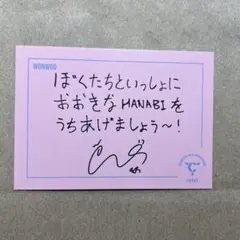 WONWOO
ぼくたちといっしょに
おおきなHANABIを
うちあげましょう〜!